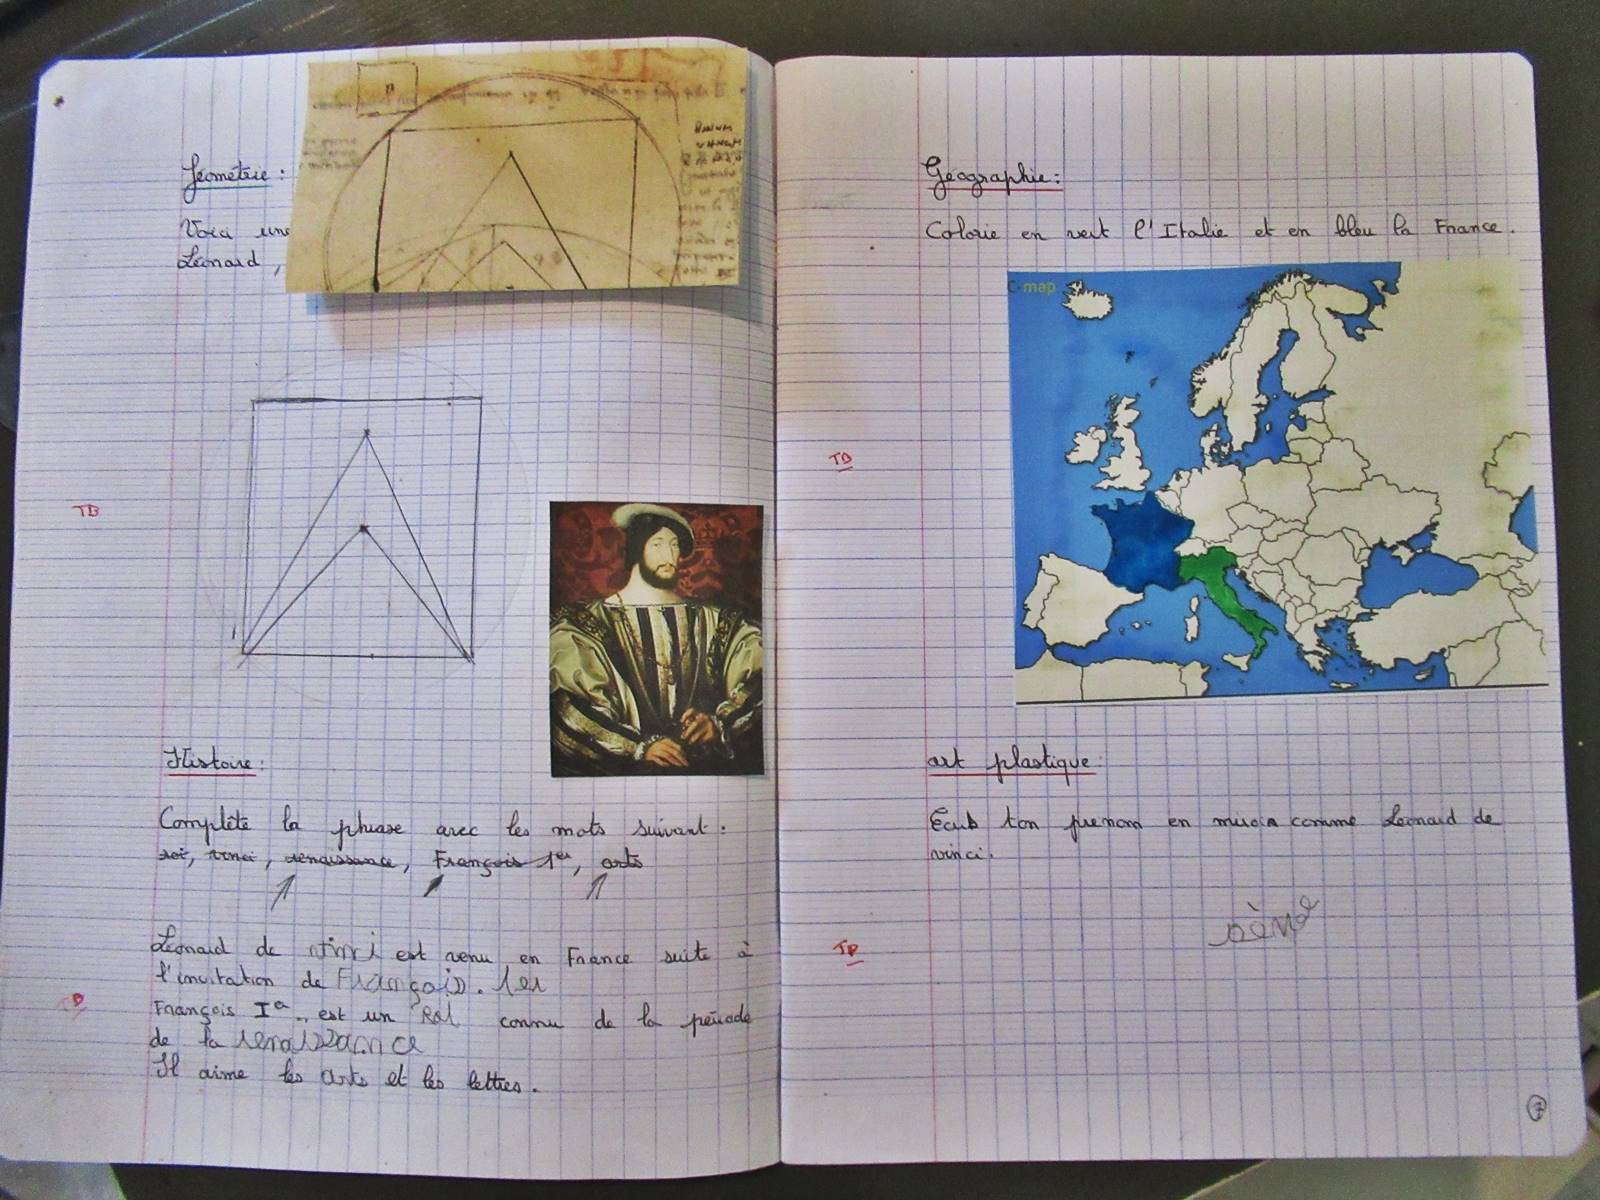 Géométrie :
Voici une
Léonard,
TB
Histoire :
Complète la phrase avec les mots suivant :
roi, vinci, renaissance, François 1er, arts
Léonard de vinci est venu en France suite à
l'invitation de François. 1er
TB
François Ier est un Roi connu de la période
de la renaissance
Il aime les arts et les lettres.
Géographie :
Colorie en vert l'Italie et en bleu la France.
C-map
TB
art plastique :
Ecris ton prenom en miroir comme Léonard de
vinci.
TB
7